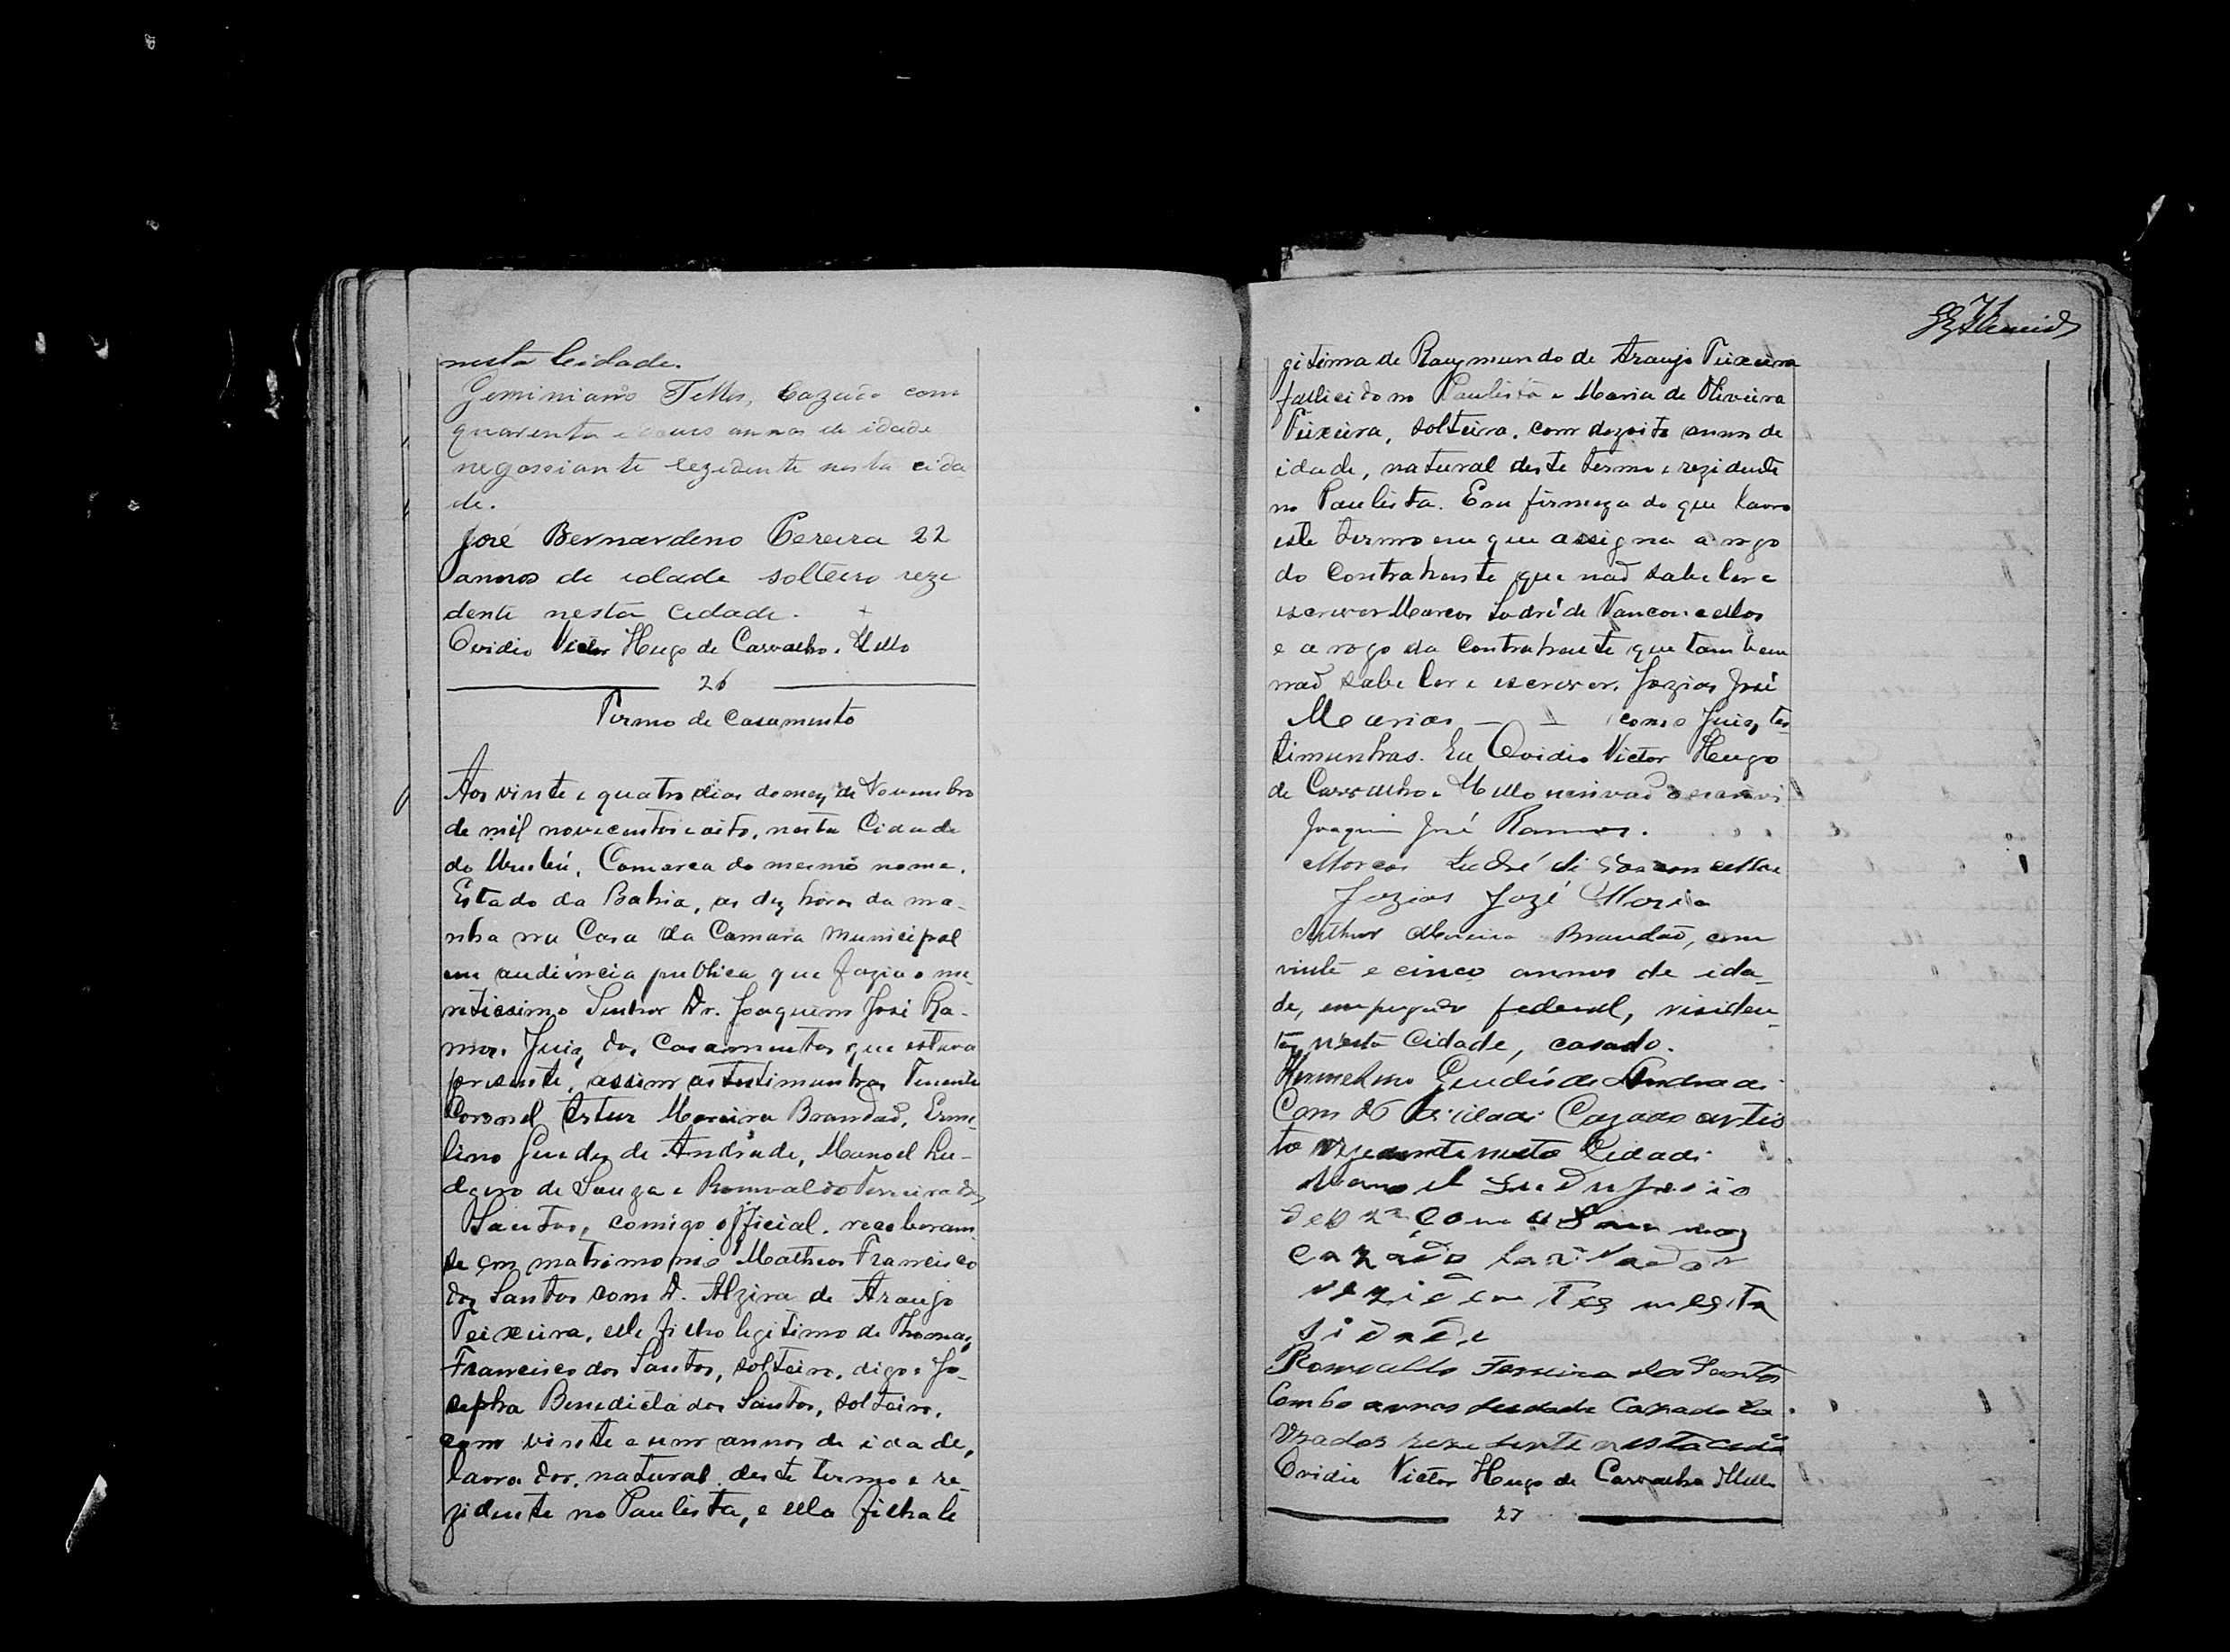 nesta Cidade.
Geminiano Telles, Cazado com
quarenta e annos de idade
negossiante rezidente nesta cida
de.
José Bernardino Pereira 22
annos de idade solteiro reze
dente nesta Cidade.
Ovidio Victor Hugo de Carvalho e Mello
26
Termo de Casamento
Aos vinte e quatro dias do mez de Novembro
de mil novecentos e oito, nesta Cidade
do Urubú, Comarca do mesmo nome,
Estado da Bahia, as dez horas da ma-
nha na Casa da Camara Municipal
em audiencia publica que fazia o me-
ritissimo Senhor Dr. Joaquim José Ra-
mos. Juiz dos Casamentos que estava
presente, assim as testimunhas Tenente
Coronel Artur Moreira Brandaõ, Erme-
lino Guedes de Andrade, Manoel Lu-
dgero de Souza e Romualdo Ferreira dos
Santos, comigo official. receberam
se em matrimonio Matheos Francisco
dos Santos com D. Alzira de Araujo
Teixeira, elle filho legitimo de Thomaz
Francisco dos Santos, solteiro, digo e Jo-
sepha Benedicta dos Santos, solteiro,
com vinte e um annos de idade,
lavrador, natural deste termo e re-
zidente no Paulista, e ella filha le
71
gitima de Raymundo de Araujo Teixeira
fallicido no Paulista e Maria de Oliveira
Teixeira, solteira, com dezoito annos de
idade, natural deste termo e rezidente
no Paulista. Em firmeza do que lavro
este termo em que assigna a rogo
do Contrahente que naõ sabe ler e
escrever Marcos Sodré de Vasconcellos
e a rogo da Contrahente que tambem
naõ sabe ler e escrever, Jozias José
Marias com o Juiz, tes-
timunhas. Eu Ovidio Victor Hugo
de Carvalho e Mello escrivaõ o escrevi
Joaquim José Ramos.
Marcos Sodré de Vasconcellos
Jozias Jozé Maria
Arthur Moreira Brandaõ, com
vinte e cinco annos de ida-
de, empregado federal, residen-
te nesta Cidade, casado.
Guedes de Andrade
Com 26 de idade Cazado artis
ta rezedente nesta Cidade
Manoel
cazado
nesta
sidade
Romualdo Ferreira dos Santos
Com 60 annos de idade Cazado la
vrador rezedente nesta cidade
Ovidio Victor Hugo de Carvalho e Mello
27